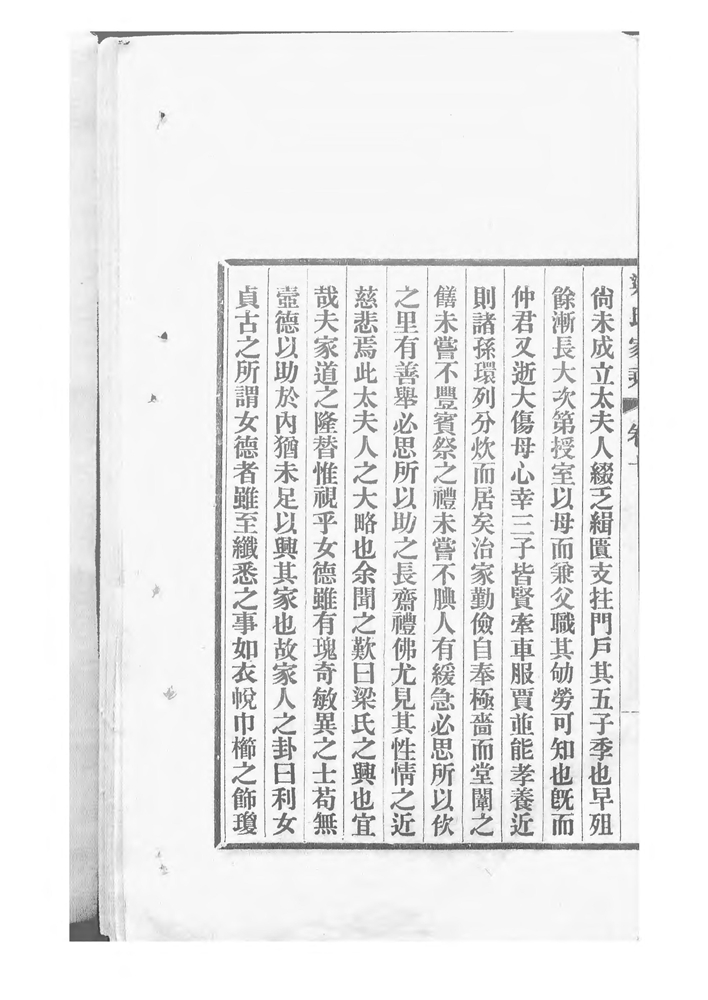 梁氏家乘 卷十
尙未成立太夫人綴乏緝匱支拄門戸其五子季也早殂
餘漸長大次第授室以母而兼父職其劬勞可知也旣而
仲君又逝大傷母心幸三子皆賢牽車服賈並能孝養近
則諸孫環列分炊而居矣治家勤儉自奉極嗇而堂闈之
饍未嘗不豐賓祭之禮未嘗不腆人有緩急必思所以佽
之里有善舉必思所以助之長齋禮佛尤見其性情之近
慈悲焉此太夫人之大略也余聞之歎曰梁氏之興也宜
哉夫家道之隆替惟視乎女德雖有瑰奇敏異之士苟無
壼德以助於內猶未足以興其家也故家人之卦曰利女
貞古之所謂女德者雖至纖悉之事如衣帨巾櫛之飾瓊